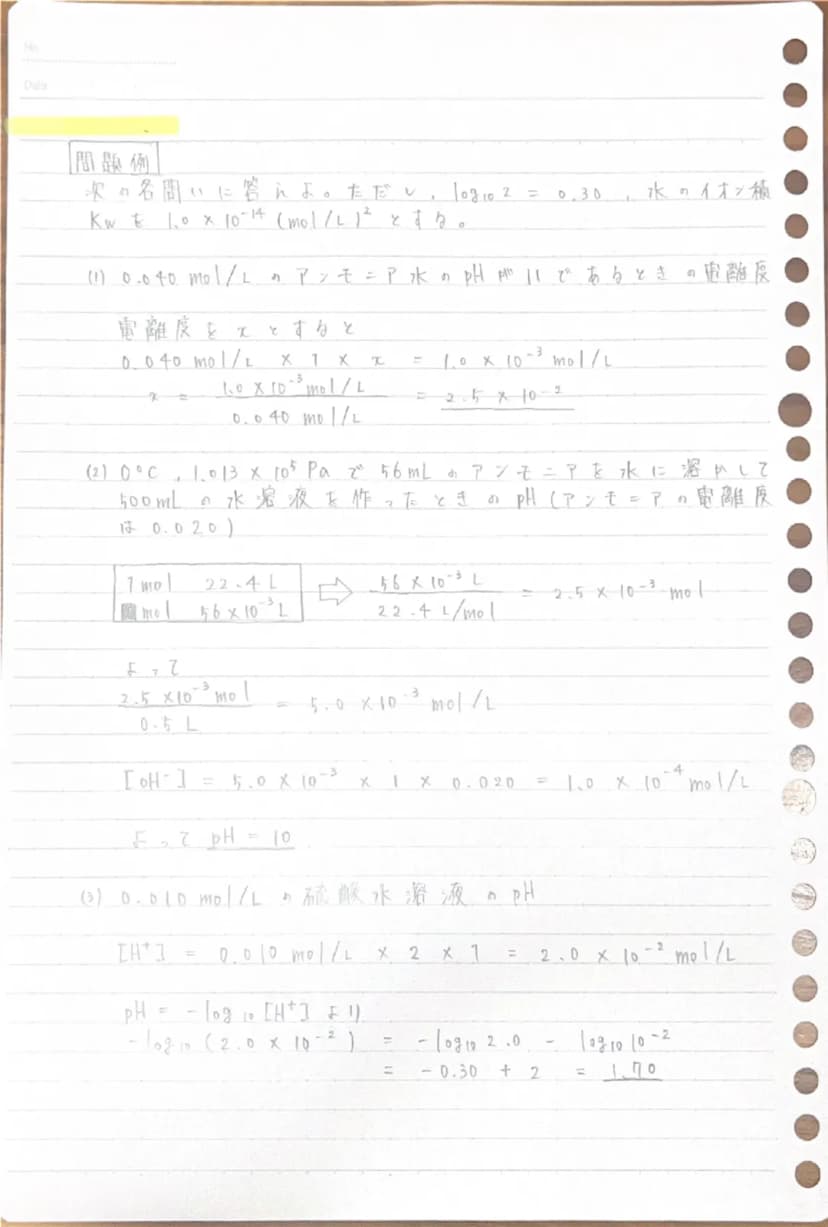 No.
Date
問題例
次の各問いに答えよ。ただし、log₁₀2 = 0.30 , 水のイオン積
Kw を 1.0 × 10⁻¹⁴ (mol/L)² とする。
(1) 0.040 mol/L のアンモニア水の pH が 11 であるときの電離度
電離度を x とすると
0.040 mol/L × 1 × x = 1.0 × 10⁻³ mol/L
x = 1.0 × 10⁻³ mol/L / 0.040 mol/L = 2.5 × 10⁻²
(2) 0°C , 1.013 × 10⁵ Pa で 56mL のアンモニアを水に溶かして
500mL の水溶液を作ったときの pH (アンモニアの電離度
は 0.020)
1 mol 22.4 L
mol 56×10⁻³ L
⇨ 56 × 10⁻³ L / 22.4 L/mol = 2.5 × 10⁻³ mol
よって
2.5 × 10⁻³ mol / 0.5 L = 5.0 × 10⁻³ mol/L
[OH⁻] = 5.0 × 10⁻³ × 1 × 0.020 = 1.0 × 10⁻⁴ mol/L
よって pH = 10
(3) 0.010 mol/L の硫酸水溶液の pH
[H⁺] = 0.010 mol/L × 2 × 1 = 2.0 × 10⁻² mol/L
pH = -log₁₀[H⁺] より
-log₁₀(2.0 × 10⁻²) = -log₁₀2.0 - log₁₀10⁻²
= -0.30 + 2 = 1.70